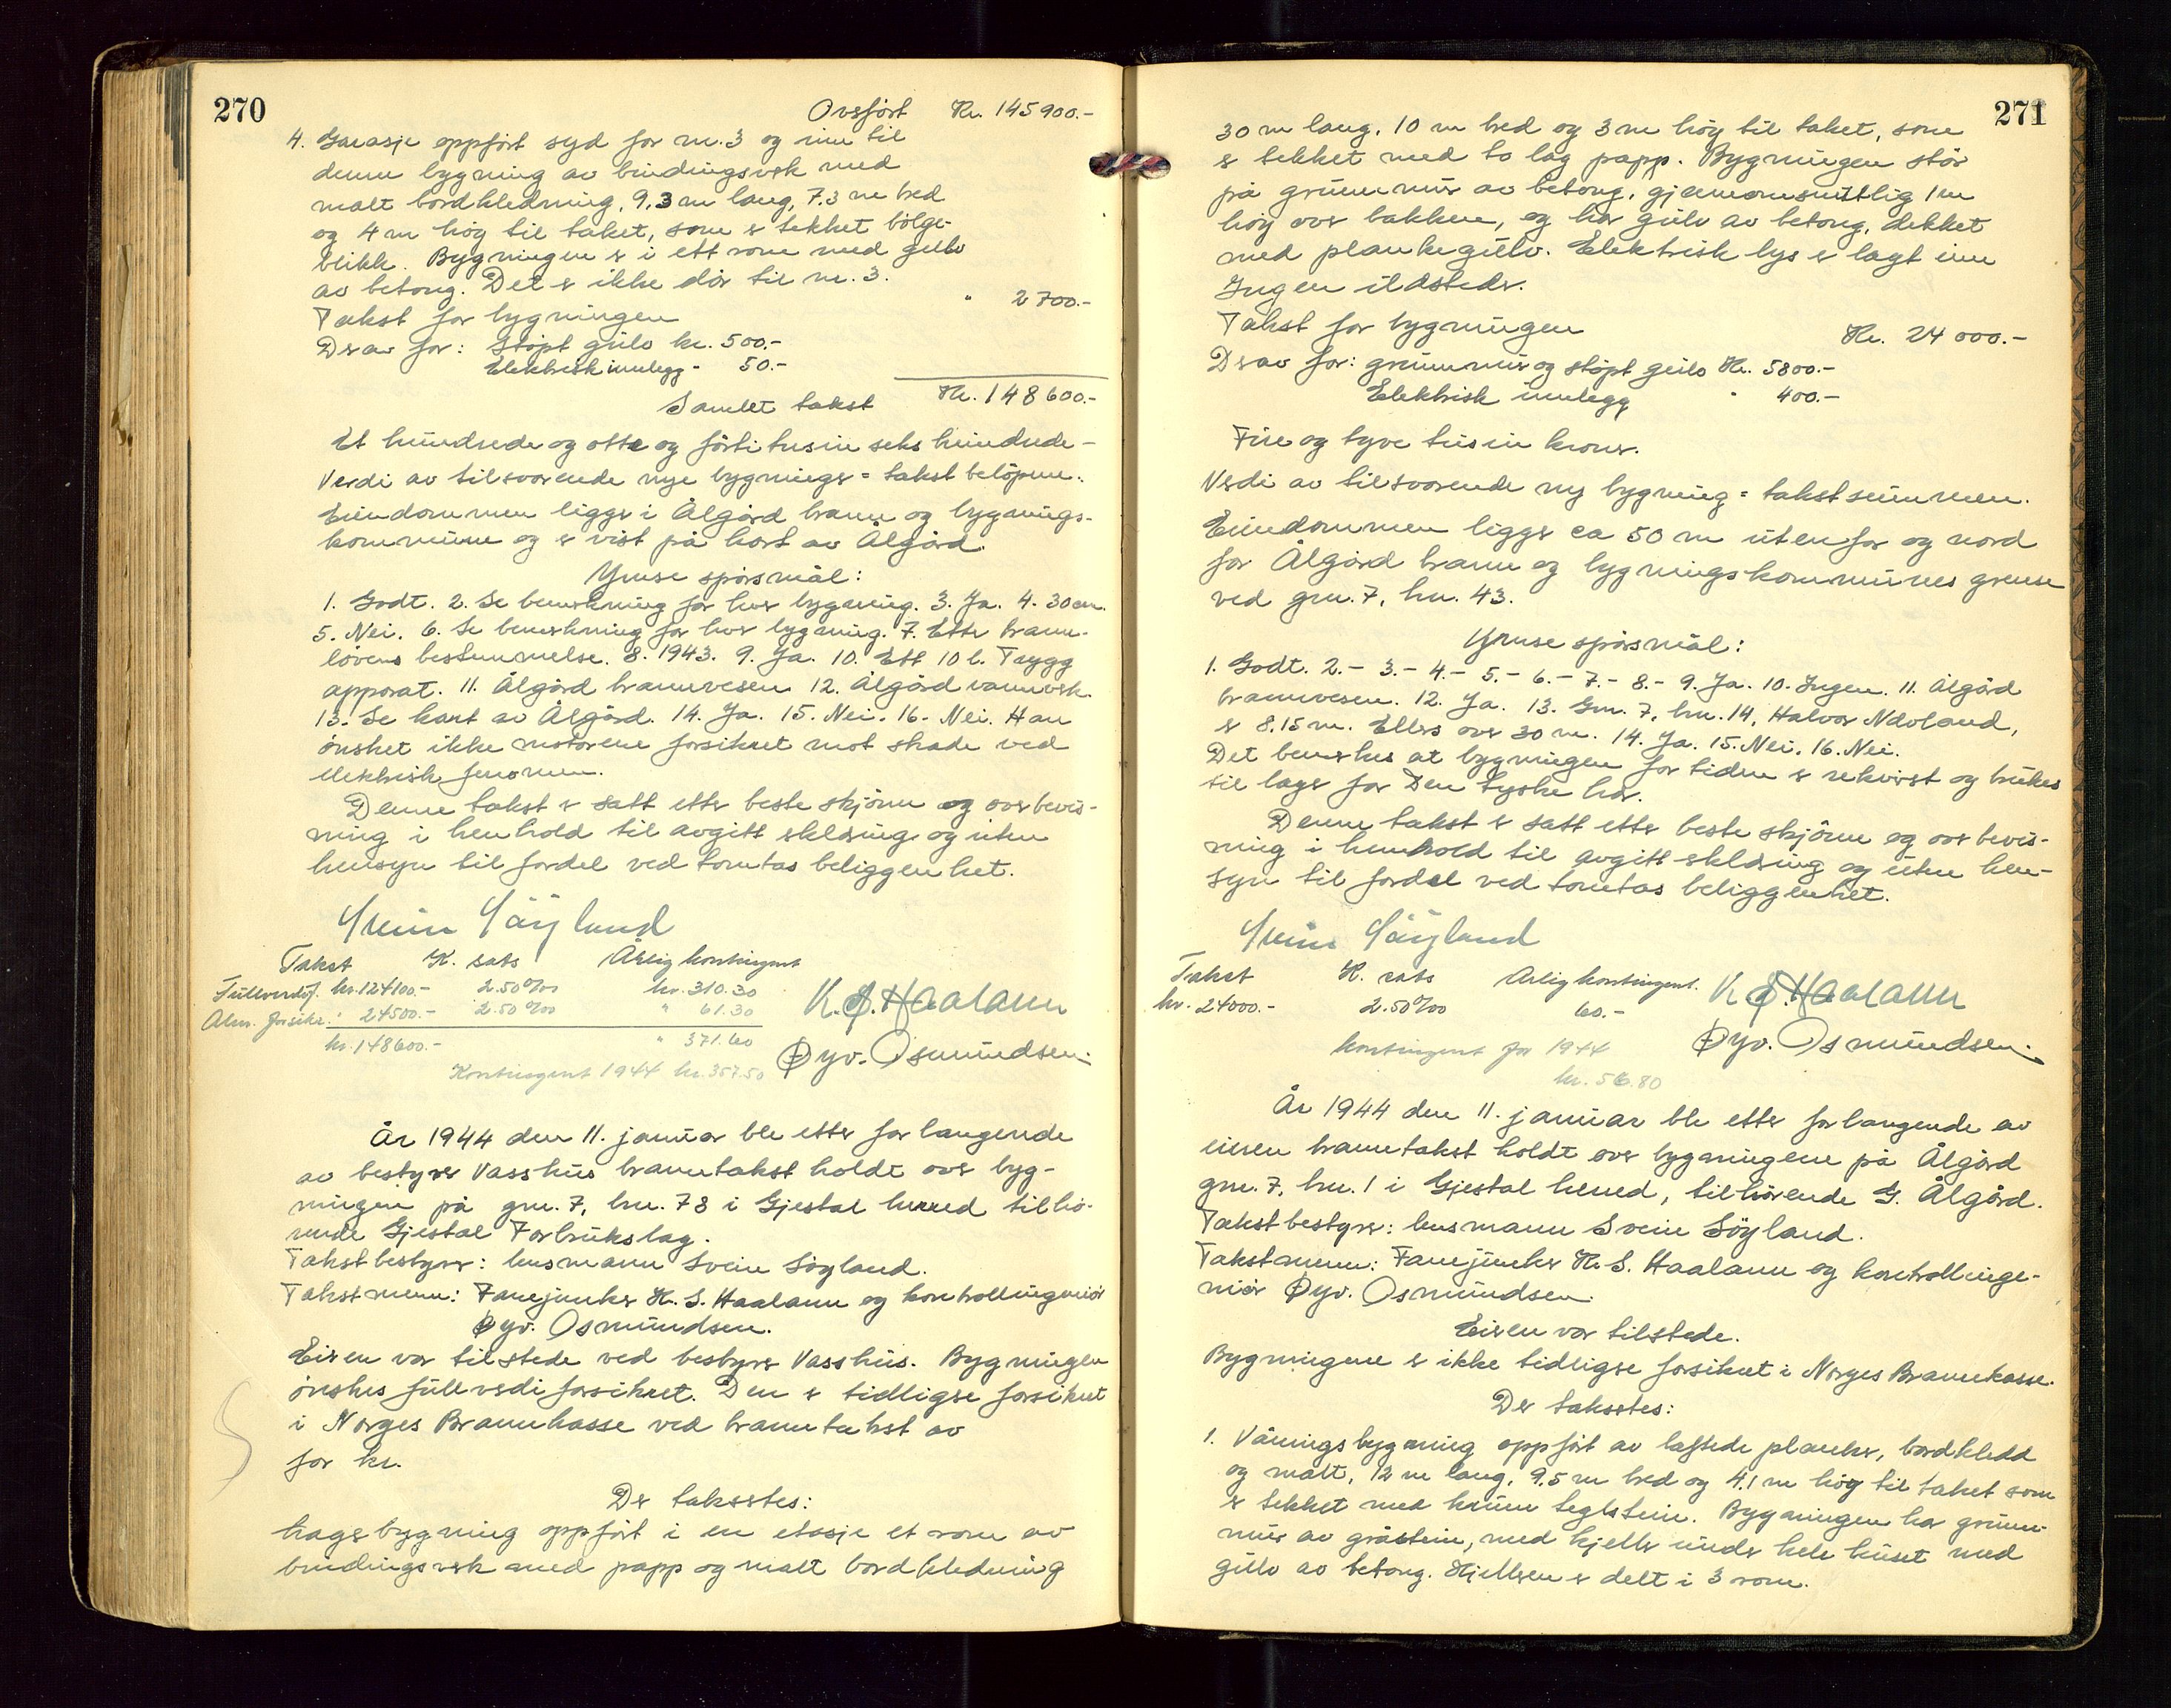 270
Overført Kr. 145900.-
4. Garasje oppført syd for nr. 3 og inn til
denne bygning av bindingsverk med
malt bordkledning, 9,3 m lang, 7.3 m bred
og 4 m høg til taket, som er tekket bølge-
blikk. Bygningen er i ett rom med gulv
av betong. Det er ikke dør til nr. 3.
Takst for bygningen " 2700.-
Derav for: Støpt gulv kr. 500.-
Elektrisk innlegg - 50.-
Samlet takst Kr. 148600.-
Et hundrede og otte og førti tusin seks hundrede -
Verdi av tilsvarende nye bygninger = takst beløpene.
Eiendommen ligger i Ålgård brann og bygnings-
kommune og er vist på kart av Ålgård.
Ymse spørsmål:
1. Godt. 2. Se bemerkning for hver bygning. 3. Ja. 4. 30 cm.
5. Nei. 6. Se bemerkning for hver bygning. 7. Etter brann-
lovens bestemmelse. 8. 1943. 9. Ja. 10. Ett 10 l. Trygg
apparat. 11. Ålgård brannvesen 12. Ålgård vannverk.
13. Se kart av Ålgård. 14. Ja. 15. Nei. 16. Nei. Han
ønsket ikke motorene forsikret mot skade ved
elektrisk fenomen.
Denne takst er satt etter beste skjønn og overbevis-
ning i henhold til avgitt erklæring og uten
hensyn til fordel ved tomtas beliggenhet.
Svein Søyland
Takst K. sats Årlig kontingent
Fullverdif. kr. 124100.- 2.50 0/00 kr. 310.30
Alm. forsikr. " 24500.- 2.50 0/00 " 61.30
kr. 148600.- " 371.60
Kontingent 1944 kr. 357.50
K. S. Haaland
Øyv. Osmundsen.
År 1944 den 11. januar ble etter forlangende
av bestyrer Vasshus branntakst holdt over byg-
ningen på gnr. 7, bnr. 78 i Gjestal herred tilhø-
rende Gjestal Forbrukslag.
Takstbestyrer: lensmann Svein Søyland.
Takstmenn: Fanejunker K. S. Haaland og kontrollingeniør
Øyv. Osmundsen.
Eieren var tilstede ved bestyrer Vasshus. Bygningen
ønskes fullverdiforsikret. Den er tidligere forsikret
i Norges Brannkasse ved branntakst av
for kr.
Der takseres:
Lagerbygning oppført i en etasje et rom av
bindingsverk med papp og malt bordkledning
271
30 m lang, 10 m bred og 3 m høg til taket, som
er tekket med to lag papp. Bygningen står
på grunnmur av betong, gjennomsnittlig 1 m
høg over bakken, og har gulv av betong, dekket
med plankegulv. Elektrisk lys er lagt inn
Ingen ildsteder.
Takst for bygningen Kr. 24 000.-
Derav for: grunnmur og støpt gulv Kr. 5800.-
Elektrisk innlegg " 400.-
Fire og tyve tusin kroner.
Verdi av tilsvarende ny bygning = takstsummen.
Eiendommen ligger ca 50 m utenfor og nord
for Ålgård brann og bygningskommunes grense
ved gnr. 7, bnr. 43.
Ymse spørsmål:
1. Godt. 2.- 3.- 4.- 5.- 6.- 7.- 8.- 9. Ja. 10. Ingen. 11. Ålgård
brannvesen. 12. Ja. 13. Gnr. 7, bnr. 14, Halvor Ndvland,
er 8.15 m. Ellers over 30 m. 14. Ja. 15. Nei. 16. Nei.
Det bemerkes at bygningen for tiden er rekvirert og brukes
til lager for Den tyske hær.
Denne takst er satt etter beste skjønn og overbevis-
ning i henhold til avgitt erklæring og uten hen-
syn til fordel ved tomtas beliggenhet.
Svein Søyland
Takst K. sats Årlig kontingent.
kr. 24000.- 2.50 0/00 60.-
kontingent for 1944
kr. 56.80
K. S. Haaland
Øyv. Osmundsen.
År 1944 den 11. januar ble etter forlangende av
eieren branntakst holdt over bygningene på Ålgård
gnr. 7, bnr. 1 i Gjestal herred, tilhørende G. Ålgård.
Takstbestyrer: lensmann Svein Söyland.
Takstmenn: Fanejunker K. S. Haaland og kontrollinge-
niør Øyv. Osmundsen.
Eieren var tilstede.
Bygningene er ikke tidligere forsikret i Norges Brannkasse.
Der takseres:
1. Våningsbygning oppført av laftede planker, bordkledd
og malt, 12 m lang, 9,5 m bred og 4,1 m høg til taket som
er tekket med krum teglstein. Bygningen har grunn-
mur av gråstein, med kjeller under hele huset med
gulv av betong. Kjelleren er delt i 3 rom.